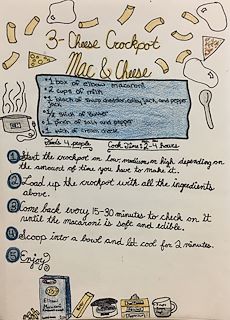 3-Cheese Crockpot
Mac & Cheese
*1 box of elbow macaroni
*2 cups of milk
*1 block of sharp cheddar, colby jack, and pepper
jack
*½ stick of butter
*1 pinch of salt and pepper
of cream cheese
Feeds 4 people Cook Time: 2-4 hours
1 Start the crockpot on low, medium, or high depending on
the amount of time you have to make it.
2 Load up the crockpot with all the ingredients
above.
3 Come back every 15-30 minutes to check on it
until the macaroni is soft and edible.
4 Scoop into a bowl and let cool for 2 minutes.
5 Enjoy
Elbow
Macaroni